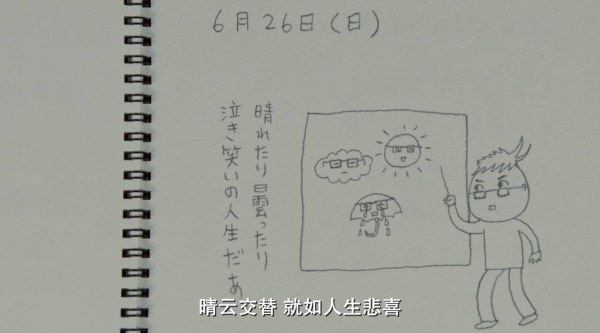 6月26日(日)
晴れたり曇ったり
泣き笑いの人生だぁ
晴云交替 就如人生悲喜